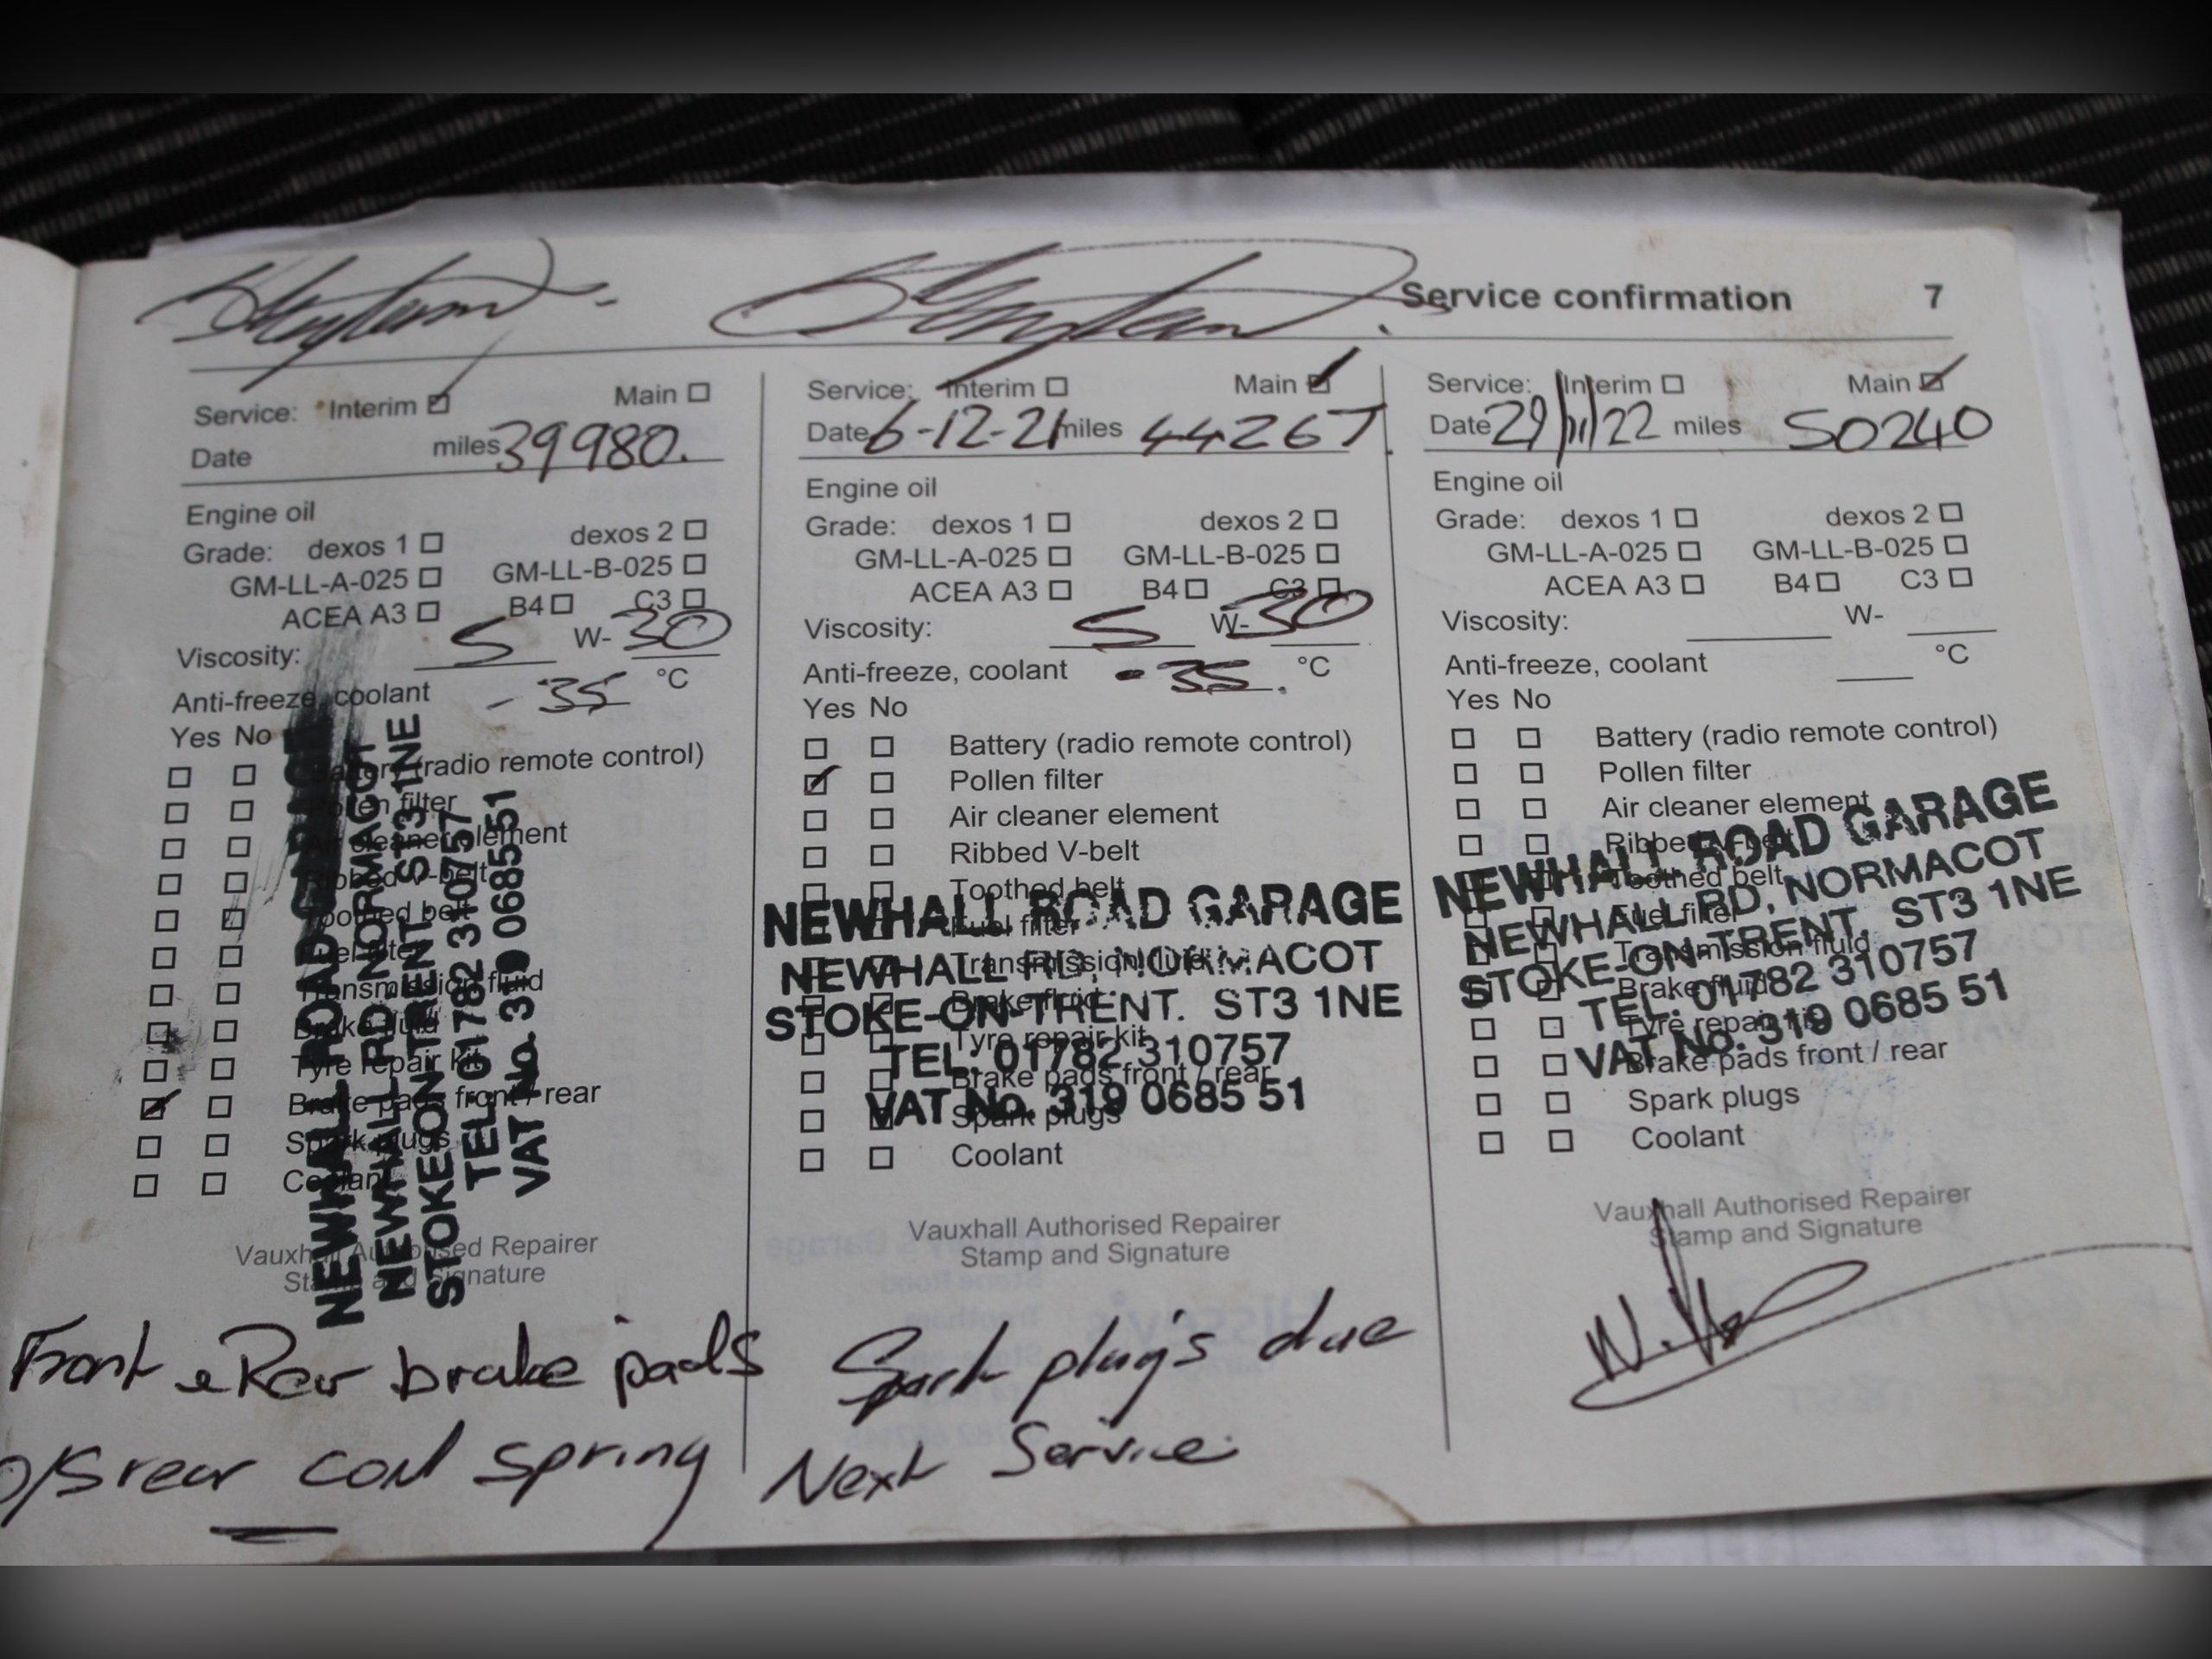 Service confirmation 7
Service: Interim Main
Date miles 39980.
Engine oil
Grade: dexos 1 dexos 2
GM-LL-A-025 GM-LL-B-025
ACEA A3 B4 C3
Viscosity: 5 W- 30
Anti-freeze, coolant -35 °C
Yes No
Battery (radio remote control)
Pollen filter
Air cleaner element
Ribbed V-belt
Toothed belt
Fuel filter
Transmission fluid
Brake fluid
Tyre repair kit
Brake pads front / rear
Spark plugs
Coolant
NEWHALL ROAD GARAGE
NEWHALL RD, NORMACOT
STOKE-ON-TRENT. ST3 1NE
TEL: 01782 310757
VAT No. 319 0685 51
Vauxhall Authorised Repairer
Stamp and Signature
Front & Rear brake pads
o/s rear coil spring
Service: Interim Main
Date 6-12-21 miles 44267
Engine oil
Grade: dexos 1 dexos 2
GM-LL-A-025 GM-LL-B-025
ACEA A3 B4 C3
Viscosity: 5 W- 30
Anti-freeze, coolant -35. °C
Yes No
Battery (radio remote control)
Pollen filter
Air cleaner element
Ribbed V-belt
Toothed belt
Fuel filter
Transmission fluid
Brake fluid
Tyre repair kit
Brake pads front / rear
Spark plugs
Coolant
NEWHALL ROAD GARAGE
NEWHALL RD, NORMACOT
STOKE-ON-TRENT. ST3 1NE
TEL: 01782 310757
VAT No. 319 0685 51
Vauxhall Authorised Repairer
Stamp and Signature
Spark plug's due
Next Service
Service: Interim Main
Date 29/11/22 miles 50240
Engine oil
Grade: dexos 1 dexos 2
GM-LL-A-025 GM-LL-B-025
ACEA A3 B4 C3
Viscosity: W-
Anti-freeze, coolant °C
Yes No
Battery (radio remote control)
Pollen filter
Air cleaner element
Ribbed V-belt
Toothed belt
Fuel filter
Transmission fluid
Brake fluid
Tyre repair kit
Brake pads front / rear
Spark plugs
Coolant
NEWHALL ROAD GARAGE
NEWHALL RD, NORMACOT
STOKE-ON-TRENT. ST3 1NE
TEL: 01782 310757
VAT No. 319 0685 51
Vauxhall Authorised Repairer
Stamp and Signature